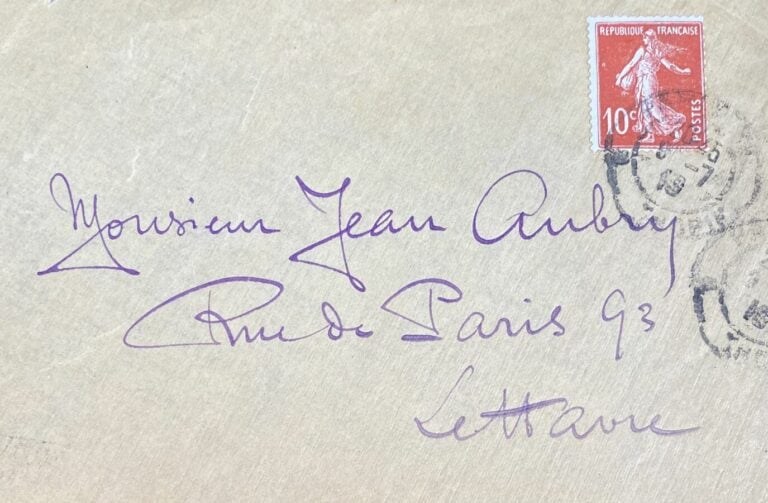 REPUBLIQUE FRANÇAISE
10c
POSTES
Monsieur Jean Aubry
Rue de Paris 93
Le Havre